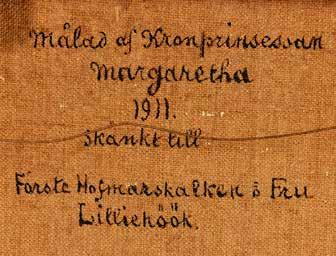 Målad af Kronprinsessan
Margaretha
1911.
skänkt till
Förste Hofmarskalken o Fru
Lilliehöök.